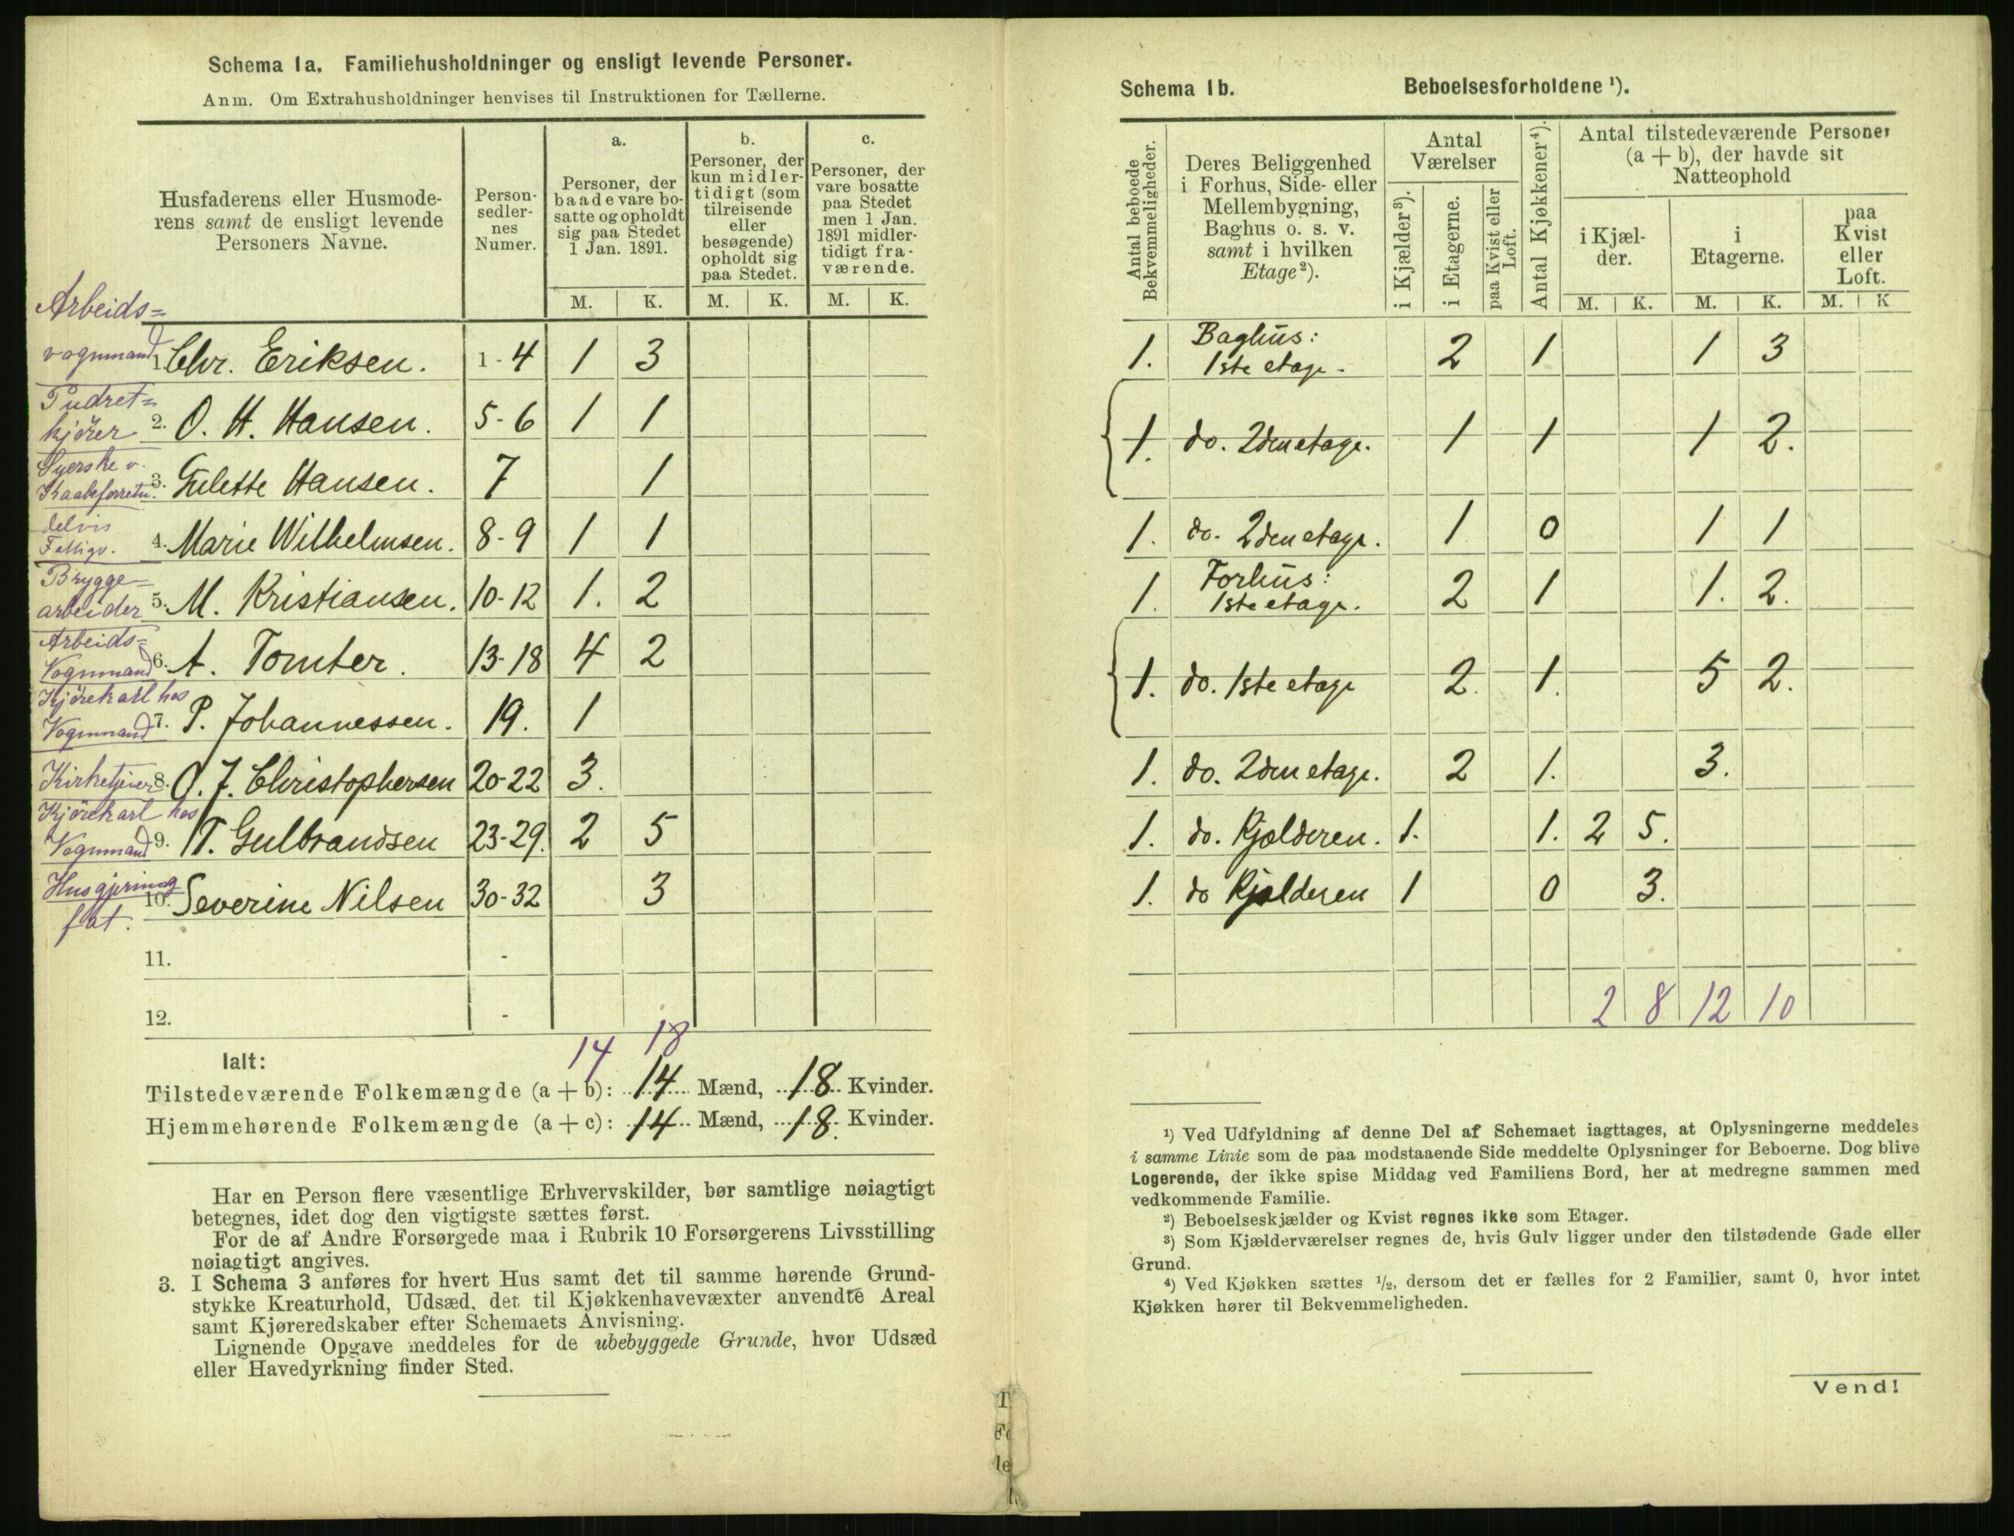 Schema 1a. Familiehusholdninger og ensligt levende Personer.
Anm. Om Extrahusholdninger henvises til Instruktionen for Tællerne.
Husfaderens eller Husmoderens samt de ensligt levende Personers Navne.
Personsedlernes Numer.
a. Personer, der baade vare bosatte og opholdt sig paa Stedet 1 Jan. 1891.
b. Personer, der kun midlertidigt (som tilreisende eller besøgende) opholdt sig paa Stedet.
c. Personer, der vare bosatte paa Stedet men 1 Jan. 1891 midlertidigt fraværende.
M. K. M. K. M. K.
Arbeids=
vognmand 1. Chr. Eriksen. 1-4 1 3
Pudret=
kjörer 2. O. H. Hansen. 5-6 1 1
Syerske v.
Kaabeforretn. 3. Gulette Hansen. 7 1
delvis
Fattigv. 4. Marie Wilhelmsen. 8-9 1 1
Brygge=
arbeider 5. M. Kristiansen. 10-12 1. 2
Arbeids=
Vognmand 6. A. Tomter. 13-18 4 2
Kjörekarl hos
Vognmand 7. P. Johannessen. 19. 1
Kirketjener 8. O. J. Christophersen 20-22 3.
Kjörekarl hos
Vognmand 9. T. Gulbrandsen 23-29. 2 5
Husgjerning
fat. 10. Severine Nilsen 30-32 3
11. -
12. -
14 18
Ialt:
Tilstedeværende Folkemængde (a + b): 14 Mænd, 18 Kvinder.
Hjemmehørende Folkemængde (a + c): 14 Mænd, 18. Kvinder.
Har en Person flere væsentlige Erhvervskilder, bør samtlige nøiagtigt
betegnes, idet dog den vigtigste sættes først.
For de af Andre Forsørgede maa i Rubrik 10 Forsørgerens Livsstilling
nøiagtigt angives.
3. I Schema 3 anføres for hvert Hus samt det til samme hørende Grund-
stykke Kreaturhold, Udsæd, det til Kjøkkenhavevæxter anvendte Areal
samt Kjøreredskaber efter Schemaets Anvisning.
Lignende Opgave meddeles for de ubebyggede Grunde, hvor Udsæd
eller Havedyrkning finder Sted.
Schema 1b. Beboelsesforholdene ¹).
Antal beboede Bekvemmeligheder.
Deres Beliggenhed i Forhus, Side- eller Mellembygning, Baghus o. s. v. samt i hvilken Etage²).
Antal Værelser
i Kjælder³).
i Etagerne.
paa Kvist eller Loft.
Antal Kjøkkener⁴).
Antal tilstedeværende Personer
(a + b), der havde sit
Natteophold
i Kjælder.
i Etagerne.
paa Kvist eller Loft.
M. K. M. K. M. K
1. Baghus:
1ste etage. 2 1 1 3
1. do. 2den etage. 1 1 1 2.
1. do. 2den etage. 1 0 1 1
1. Forhus:
1ste etage. 2 1 1. 2.
1. do. 1ste etage 2. 1. 5 2.
1. do. 2den etage. 2 1. 3.
1. do. Kjælderen. 1. 1. 2 5.
1. do Kjælderen 1 0 3.
2 8 12 10
¹) Ved Udfyldning af denne Del af Schemaet iagttages, at Oplysningerne meddeles
i samme Linie som de paa modstaaende Side meddelte Oplysninger for Beboerne. Dog blive
Logerende, der ikke spise Middag ved Familiens Bord, her at medregne sammen med
vedkommende Familie.
²) Beboelseskjælder og Kvist regnes ikke som Etager.
³) Som Kjælderværelser regnes de, hvis Gulv ligger under den tilstødende Gade eller
Grund.
⁴) Ved Kjøkken sættes ½, dersom det er fælles for 2 Familier, samt 0, hvor intet
Kjøkken hører til Bekvemmeligheden.
Vend!